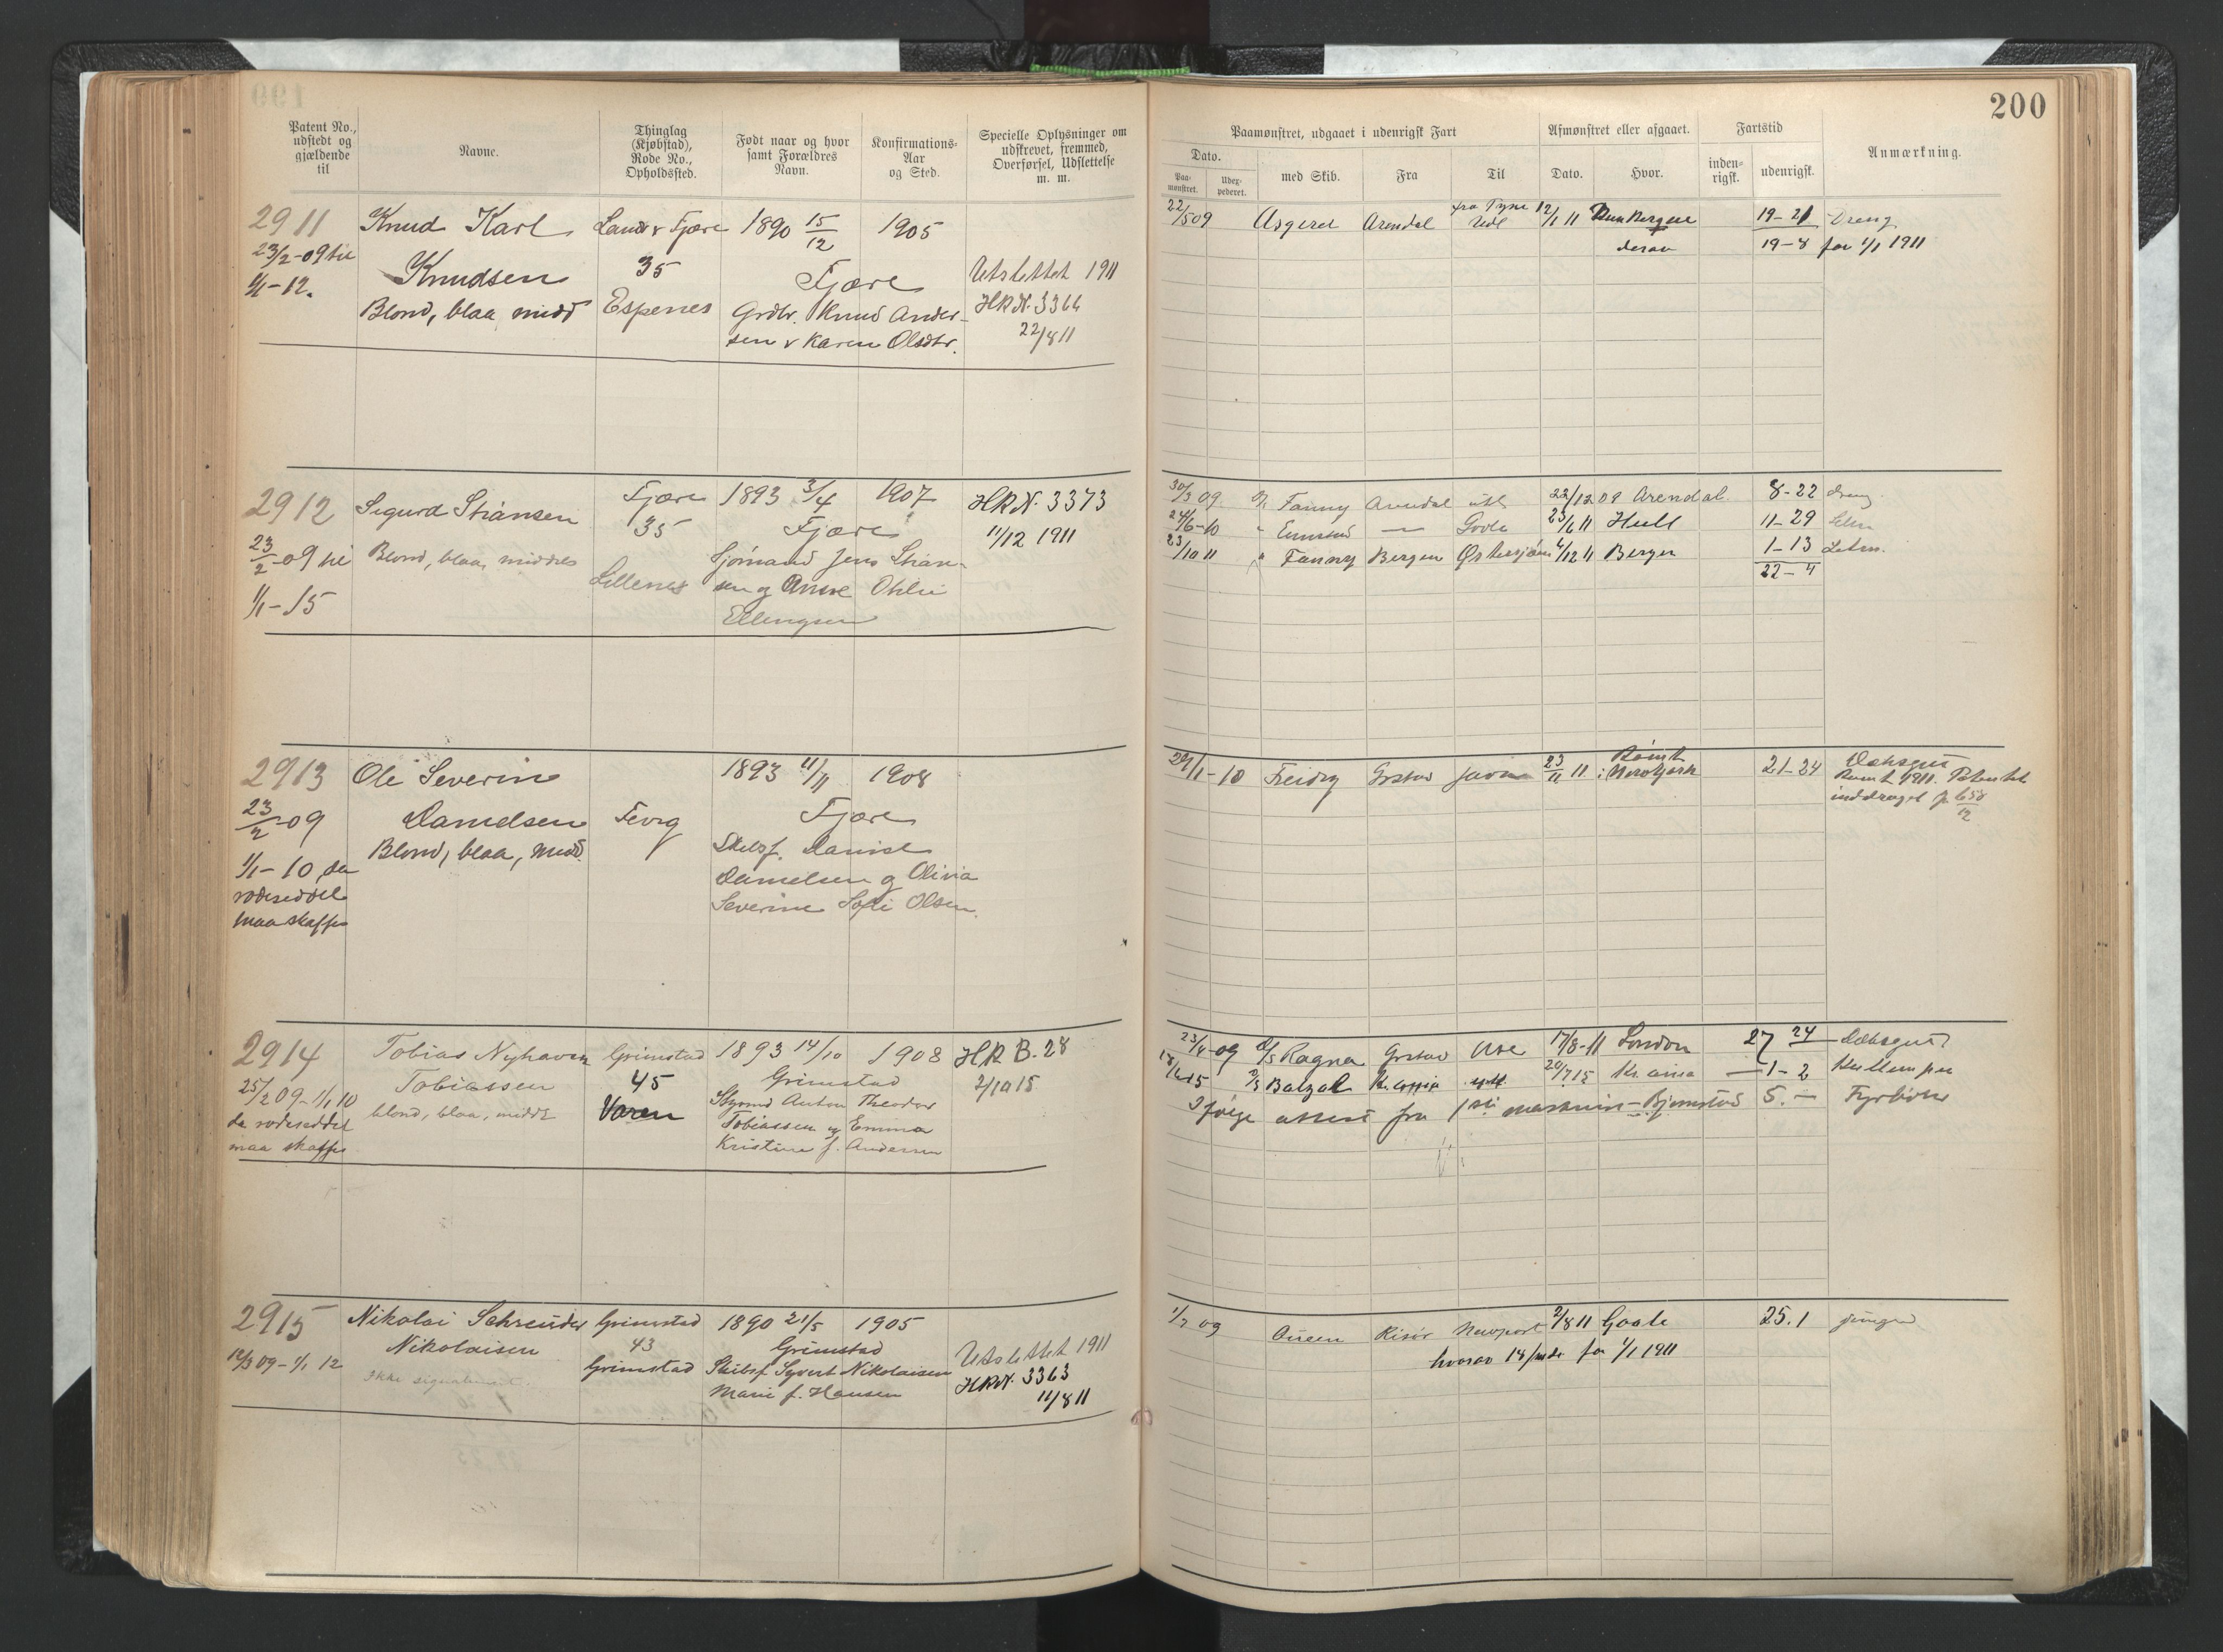 200
Patent No., udstedt og gjældende til
Navne.
Thinglag (Kjøbstad), Rode No., Opholdssted.
Født naar og hvor samt Forældres Navn.
Konfirmations-Aar og Sted.
Specielle Oplysninger om udskrevet, fremmed, Overførsel, Udslettelse m. m.
Paamønstret, udgaaet i udenrigsk Fart
Afmønstret eller afgaaet.
Fartstid
Anmærkning.
Dato.
Paa-mønstret.
Udex-pederet.
med Skib.
Fra
Til
Dato.
Hvor.
inden-rigsk.
udenrigsk.
2911 Knud Karl Landv Fjære 1890 15/12 1905
23/2-09 til Knudsen 35 Fjære Utslettet 1911
1/1-12. Blond, blaa, midd Espenes Grdbr. Knud Ander- HRN. 3364
sen v Karen Olsdtr. 22/8 11
22/5 09 Asgerd Arendal fra Tyne 12/1 11 19-21 Dreng
derav 19-8 før 1/1 1911
2912 Sigurd Stiansen Fjære 1893 3/4 1907 HRN. 3373
35 Fjære 11/12 1911
23/2-09 til Blond, blaa, middels Sjømand Jens Stian-
1/1-15 Lillenes sen og Anne Othlie
Ellingsen
30/3 09. Fanny Arendal 22/12 09 Arendal. 8-22 dreng
24/6-10 23/6 11 Hull 11-29
23/10 11 Fanny Bergen Østersjøen 4/12 11 Bergen 1-13 Letm.
22-4
2913 Ole Severin 1893 11/11 1908
23/2-09 Danielsen Fevig Fjære
Blond, blaa, midd. Skibsf. Daniel
1/1-10, da Danielsen og Olivia
rodeseddel Severine Sofie Olsen.
maa skaffes
29/1-10 Freidig Grstad 23/11 11 Rømt i Newyork 21-24 Dæksgut
Rømt 1911. Patentet
inddraget
2914 Tobias Nyhaven Grimstad 1893 14/10 1908 HR B. 28
25/2 09-1/1 10 Tobiassen 45 Grimstad 2/10 15
da rodeseddel blond, blaa, midd Styrmd Anton Theodor
maa skaffes Tobiassen og Emma
Kristine f. Andersen
23/4-09 Ragna Grstad 17/8-11 London 27 24 Dæksgut
Balzac 20/7 15 Kr.ania 1-2 Kullemper
I følge attest fra maskinist 5.— Fyrbøter
2915 Nikolai Schreuder Grimstad 1890 21/5 1905
12/3 09-1/1 12 Nikolaisen 43 Grimstad Utslettet 1911
Ikke signalement. Grimstad Skibsf. Syvert Nikolaisen HRN. 3363
Marie f. Hansen 11/8 11
1/7 09 Risør Newport 2/8 11 Goole 25.1 jungmd
hvorav 18 mdr før 1/1 1911